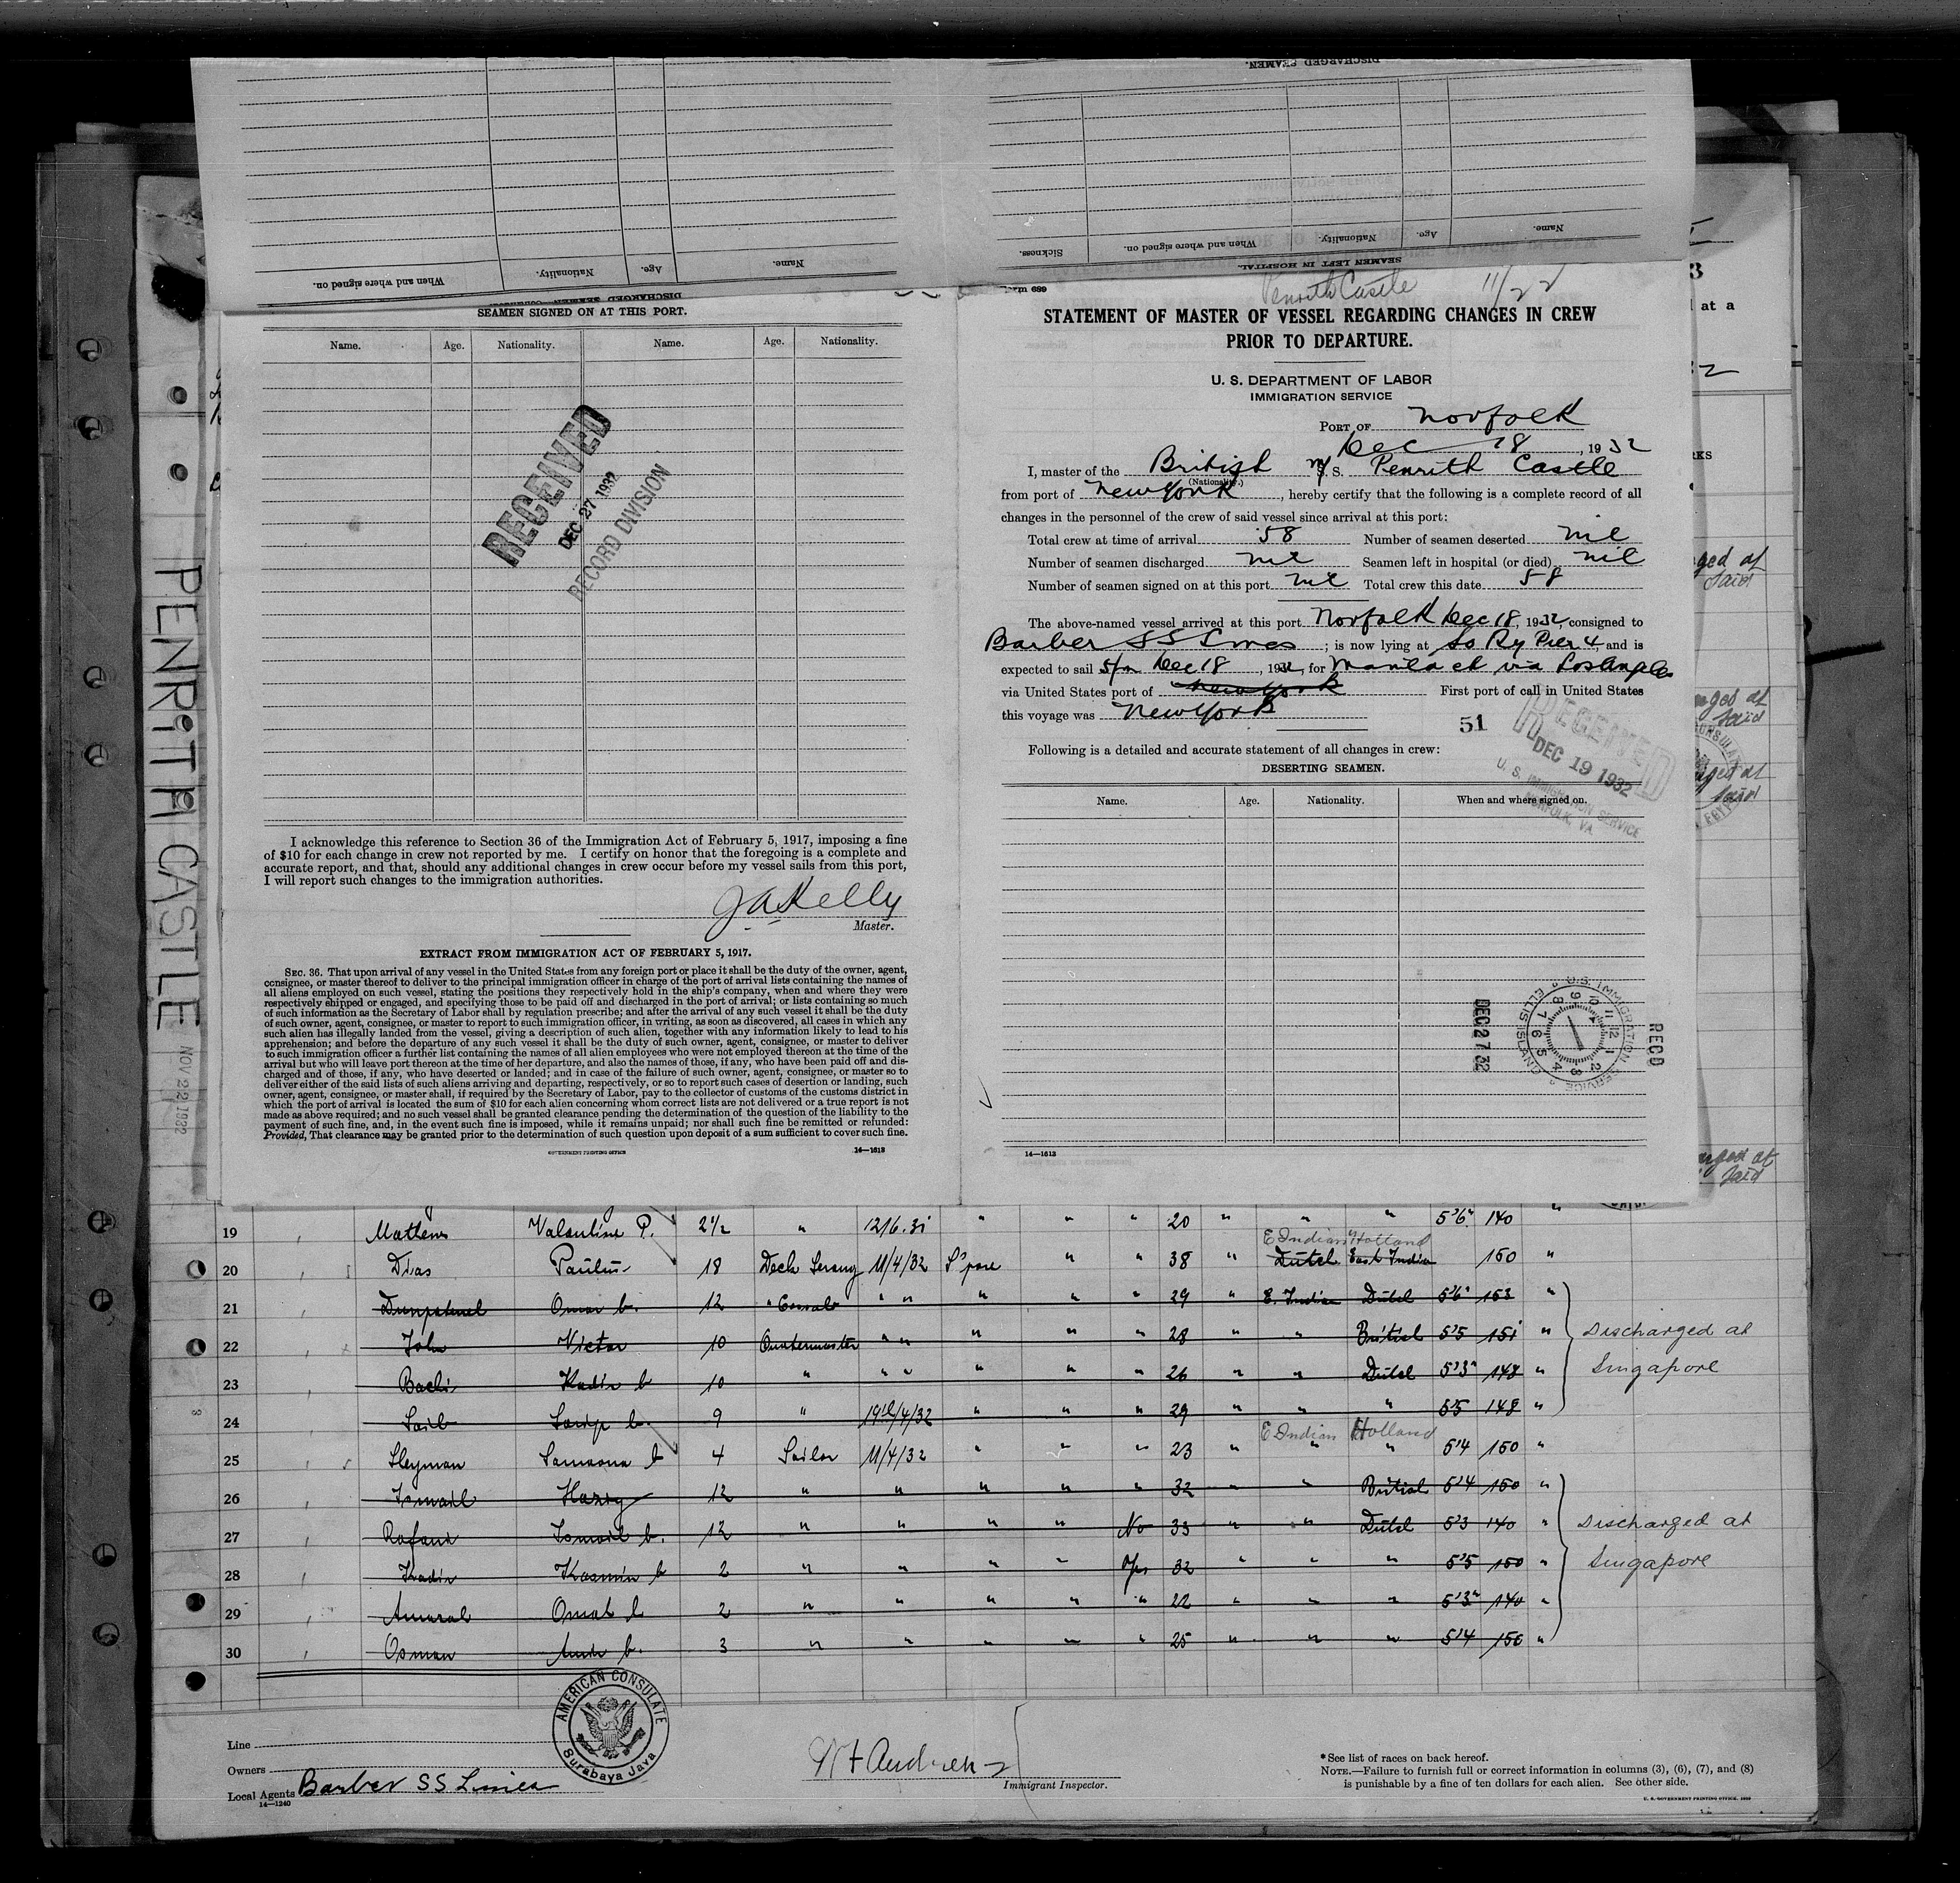 DISCHARGED SEAMEN.
When and where signed on.
Nationality.
Age.
Name.
Sickness.
When and where signed on.
Nationality.
Age.
Name.
SEAMEN LEFT IN HOSPITAL
DISCHARGED SEAMEN
SEAMEN SIGNED ON AT THIS PORT.
Name. Age. Nationality. Name. Age. Nationality.
RECEIVED
DEC 27 1932
RECORD DIVISION
I acknowledge this reference to Section 36 of the Immigration Act of February 5, 1917, imposing a fine
of $10 for each change in crew not reported by me. I certify on honor that the foregoing is a complete and
accurate report, and that, should any additional changes in crew occur before my vessel sails from this port,
I will report such changes to the immigration authorities.
J A Kelly
Master.
EXTRACT FROM IMMIGRATION ACT OF FEBRUARY 5, 1917.
SEC. 36. That upon arrival of any vessel in the United States from any foreign port or place it shall be the duty of the owner, agent,
consignee, or master thereof to deliver to the principal immigration officer in charge of the port of arrival lists containing the names of
all aliens employed on such vessel, stating the positions they respectively hold in the ship's company, when and where they were
respectively shipped or engaged, and specifying those to be paid off and discharged in the port of arrival; or lists containing so much
of such information as the Secretary of Labor shall by regulation prescribe; and after the arrival of any such vessel it shall be the duty
of such owner, agent, consignee, or master to report to such immigration officer, in writing, as soon as discovered, all cases in which any
such alien has illegally landed from the vessel, giving a description of such alien, together with any information likely to lead to his
apprehension; and before the departure of any such vessel it shall be the duty of such owner, agent, consignee, or master to deliver
to such immigration officer a further list containing the names of all alien employees who were not employed thereon at the time of the
arrival but who will leave port thereon at the time of her departure, and also the names of those, if any, who have been paid off and dis-
charged and of those, if any, who have deserted or landed; and in case of the failure of such owner, agent, consignee, or master so to
deliver either of the said lists of such aliens arriving and departing, respectively, or so to report such cases of desertion or landing, such
owner, agent, consignee, or master shall, if required by the Secretary of Labor, pay to the collector of customs of the customs district in
which the port of arrival is located the sum of $10 for each alien concerning whom correct lists are not delivered or a true report is not
made as above required; and no such vessel shall be granted clearance pending the determination of the question of the liability to the
payment of such fine, and, in the event such fine is imposed, while it remains unpaid; nor shall such fine be remitted or refunded:
Provided, That clearance may be granted prior to the determination of such question upon deposit of a sum sufficient to cover such fine.
GOVERNMENT PRINTING OFFICE
14—1613
689
Penrith Castle 11/22
STATEMENT OF MASTER OF VESSEL REGARDING CHANGES IN CREW
PRIOR TO DEPARTURE.
U. S. DEPARTMENT OF LABOR
IMMIGRATION SERVICE
PORT OF Norfolk
Dec 18, 1932
I, master of the British M/S. S. Penrith Castle
(Nationality.)
from port of New York, hereby certify that the following is a complete record of all
changes in the personnel of the crew of said vessel since arrival at this port:
Total crew at time of arrival 58 Number of seamen deserted nil
Number of seamen discharged nil Seamen left in hospital (or died) nil
Number of seamen signed on at this port nil Total crew this date 58
The above-named vessel arrived at this port Norfolk Dec 18, 1932 consigned to
Barber SS Lines; is now lying at So Ry Pier 4, and is
expected to sail 5pm Dec 18, 1932, for Manila et via Los Angeles
via United States port of New York First port of call in United States
this voyage was New York
51
RECEIVED
DEC 19 1932
U. S. IMMIGRATION SERVICE
NORFOLK, VA.
Following is a detailed and accurate statement of all changes in crew:
DESERTING SEAMEN.
Name. Age. Nationality. When and where signed on.
U.S. IMMIGRATION SERVICE
ELLIS ISLAND
1 2 3 4 5 6 7 8 9 10 11 12
DEC 27 32
REC'D
14—1613
PENRITH CASTLE
NOV 22 1932
19 Mathews Valentine P. 2 1/2 " 12/6.31 " " " 20 " " " 5'6" 140 "
E Indian Holland
20 Dias Paulu 18 Deck Serang 11/4/32 S'pore " " 38 " Dutch East Indian 150 "
21 Omar b. 12 " " " " " " 29 " E. Indian Dutch 5'6" 153 "
22 John Victor 10 Quatermaster " " " " " 28 " " British 5'5 151 "
23 Bachi Kadir b 10 " " " " " " 26 " " Dutch 5'3" 148 "
24 Saib b. 9 " 19th/4/32 " " " 29 " " " 5'5 148 "
Discharged at
Singapore
E Indian Holland
25 Sleyman b 4 Sailor 11/4/32 " " " 23 " " " 5'4 150 "
26 Ismail 12 " " " " " 32 " " British 5'4 150 "
27 Ismail b. 12 " " " " No 33 " " Dutch 5'3 140 "
28 Kadir Kasmin b 2 " " " " Yes 32 " " " 5'5 150 "
29 Amaral Omat b 2 " " " " " 22 " " " 5'3" 140 "
30 Osman b. 3 " " " " " 25 " " " 5'4 150 "
Discharged at
Singapore
AMERICAN CONSULATE
Surabaya Java
Line
Owners
Local Agents Barber SS Lines
14—1240
Immigrant Inspector.
* See list of races on back hereof.
NOTE.—Failure to furnish full or correct information in columns (3), (6), (7), and (8)
is punishable by a fine of ten dollars for each alien. See other side.
U. S. GOVERNMENT PRINTING OFFICE